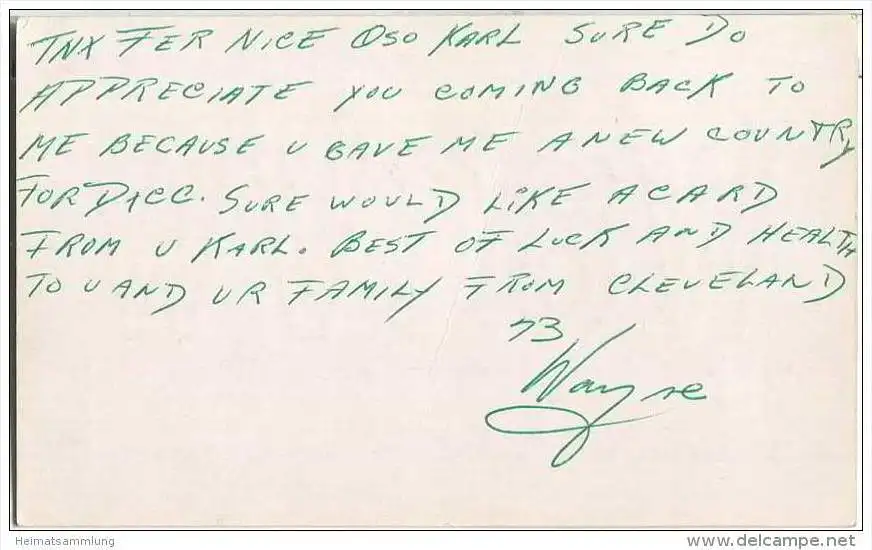 TNX FER NICE QSO KARL SURE DO
APPRECIATE YOU COMING BACK TO
ME BECAUSE U GAVE ME A NEW COUNTRY
FOR DXCC. SURE WOULD LIKE A CARD
FROM U KARL. BEST OF LUCK AND HEALTH
TO U AND UR FAMILY FROM CLEVELAND
73
Wayne
Heimatsammlung
www.delcampe.net